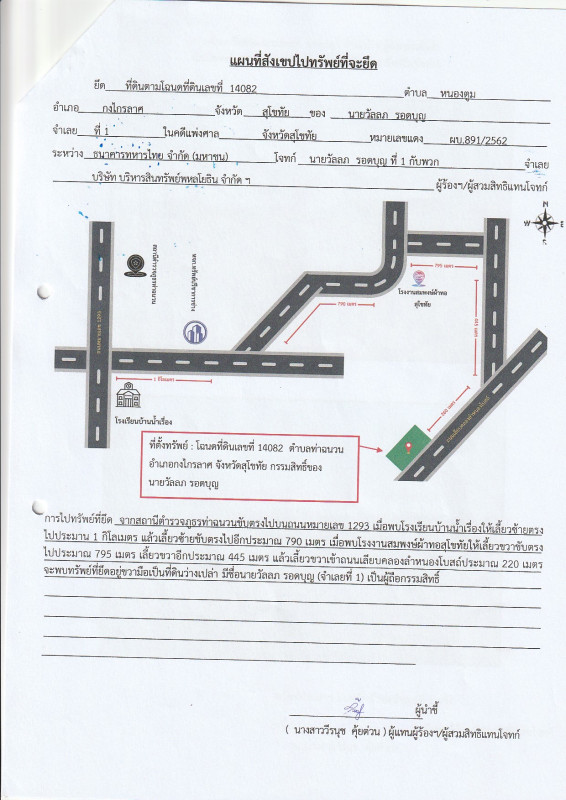 แผนที่สังเขปไปทรัพย์ที่จะยึด
ยึด ที่ดินตามโฉนดที่ดินเลขที่ 14082 ตำบล หนองตูม
อำเภอ กงไกรลาศ จังหวัด สุโขทัย ของ นายวัลลภ รอดบุญ
จำเลย ที่ 1 ในคดีแพ่งศาล จังหวัดสุโขทัย หมายเลขแดง ผบ.891/2562
ระหว่าง ธนาคารทหารไทย จำกัด (มหาชน) โจทก์ นายวัลลภ รอดบุญ ที่ 1 กับพวก จำเลย
บริษัท บริหารสินทรัพย์พหลโยธิน จำกัด ฯ ผู้ร้องฯ/ผู้สวมสิทธิแทนโจทก์
N
สถานีตำรวจภูธรท่าฉนวน
790 เมตร
795 เมตร
โรงงานสมพงษ์ผ้าทอ
สุโขทัย
445 เมตร
1 กิโลเมตร
โรงเรียนบ้านน้ำเรื่อง
ที่ตั้งทรัพย์ : โฉนดที่ดินเลขที่ 14082 ตำบลท่าฉนวน
อำเภอกงไกรลาศ จังหวัดสุโขทัย กรรมสิทธิ์ของ
นายวัลลภ รอดบุญ
การไปทรัพย์ที่ยึด จากสถานีตำรวจภูธรท่าฉนวนขับตรงไปบนถนนหมายเลข 1293 เมื่อพบโรงเรียนบ้านน้ำเรื่องให้เลี้ยวซ้ายตรง
ไปประมาณ 1 กิโลเมตร แล้วเลี้ยวซ้ายขับตรงไปอีกประมาณ 790 เมตร เมื่อพบโรงงานสมพงษ์ผ้าทอสุโขทัยให้เลี้ยวขวาขับตรง
ไปประมาณ 795 เมตร เลี้ยวขวาอีกประมาณ 445 เมตร แล้วเลี้ยวขวาเข้าถนนเลียบคลองลำหนองโบสถ์ประมาณ 220 เมตร
จะพบทรัพย์ที่ยึดอยู่ขวามือเป็นที่ดินว่างเปล่า มีชื่อนายวัลลภ รอดบุญ (จำเลยที่ 1) เป็นผู้ถือกรรมสิทธิ์
ผู้นำชี้
( นางสาววีรนุช คุ้ยต่วน ) ผู้แทนผู้ร้องฯ/ผู้สวมสิทธิแทนโจทก์